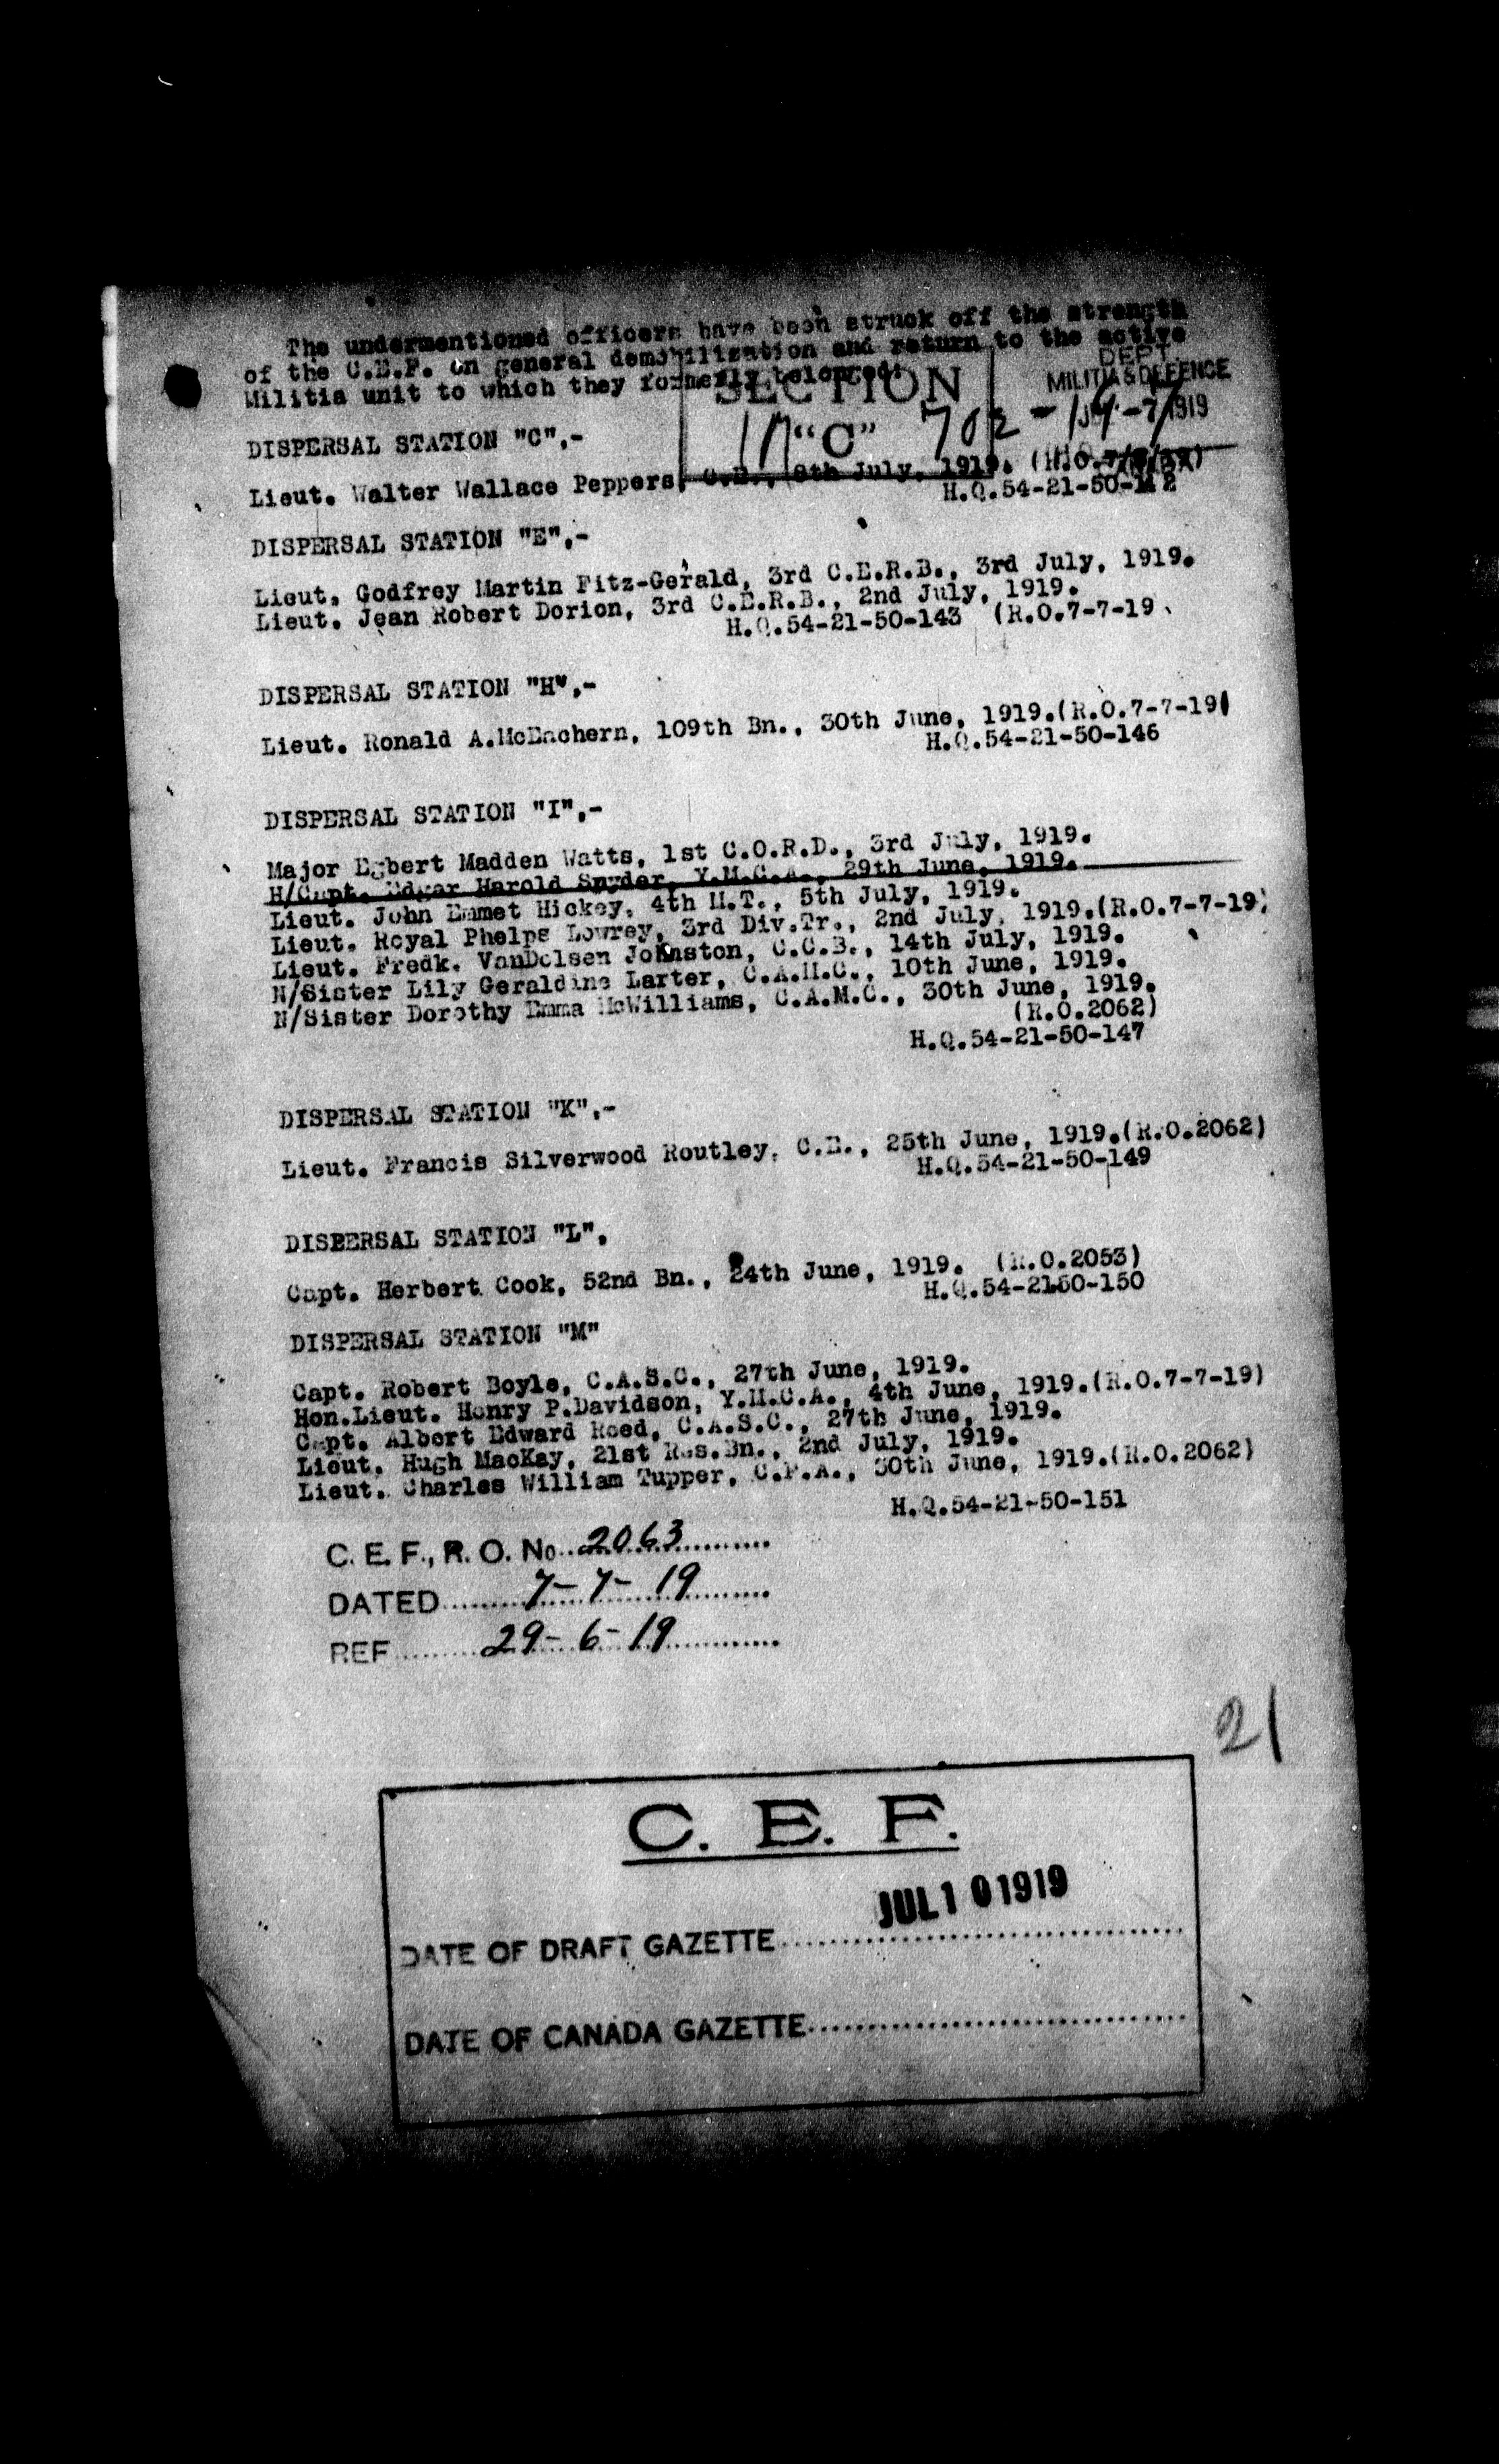 The undermentioned officers have been struck off the strength
of the C.E.F. on general demobilization and return to the active
Militia unit to which they formerly belonged:
SECTION
"C"
DEPT.
MILITIA & DEFENCE
1919
DISPERSAL STATION "C",-
Lieut. Walter Wallace Peppers, C.E., 8th July, 1919.
H.Q.54-21-50-142
DISPERSAL STATION "E",-
Lieut. Godfrey Martin Fitz-Gerald, 3rd C.E.R.B., 3rd July, 1919.
Lieut. Jean Robert Dorion, 3rd C.E.R.B., 2nd July, 1919.
H.Q.54-21-50-143 (R.O.7-7-19
DISPERSAL STATION "H",-
Lieut. Ronald A.McEachern, 109th Bn., 30th June, 1919.(R.O.7-7-19)
H.Q.54-21-50-146
DISPERSAL STATION "I",-
Major Egbert Madden Watts, 1st C.O.R.D., 3rd July, 1919.
H/Capt. Edgar Harold Snyder, Y.M.C.A., 29th June, 1919.
Lieut. John Emmet Hickey, 4th M.T., 5th July, 1919.
Lieut. Royal Phelps Lowrey, 3rd Div.Tr., 2nd July, 1919.(R.O.7-7-19)
Lieut. Fredk. VanDolsen Johnston, C.C.B., 14th July, 1919.
N/Sister Lily Geraldine Larter, C.A.M.C., 10th June, 1919.
N/Sister Dorothy Emma McWilliams, C.A.M.C., 30th June, 1919.
(R.O.2062)
H.Q.54-21-50-147
DISPERSAL STATION "K",-
Lieut. Francis Silverwood Routley, C.E., 25th June, 1919.(R.O.2062)
H.Q.54-21-50-149
DISPERSAL STATION "L",
Capt. Herbert Cook, 52nd Bn., 24th June, 1919. (R.O.2053)
H.Q.54-2150-150
DISPERSAL STATION "M"
Capt. Robert Boyle, C.A.S.C., 27th June, 1919.
Hon.Lieut. Henry P.Davidson, Y.M.C.A., 4th June, 1919.(R.O.7-7-19)
Capt. Albert Edward Reed, C.A.S.C., 27th June, 1919.
Lieut. Hugh MacKay, 21st Res.Bn., 2nd July, 1919.
Lieut. Charles William Tupper, C.F.A., 30th June, 1919.(R.O.2062)
H.Q.54-21-50-151
C. E. F., R. O. No 2063
DATED 7-7-19
REF 29-6-19
21
C. E. F.
JUL 10 1919
DATE OF DRAFT GAZETTE
DATE OF CANADA GAZETTE